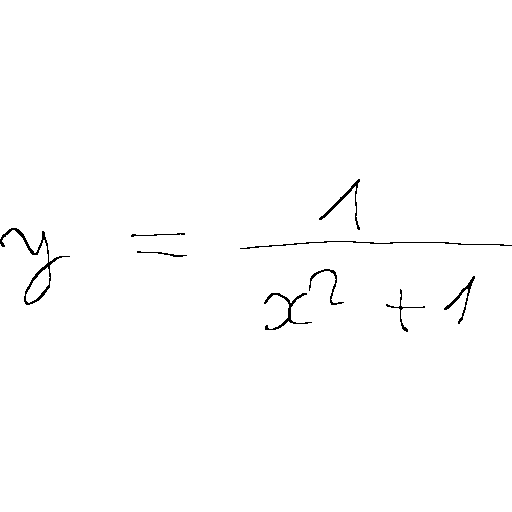 y = \frac{1}{x^2 + 1}